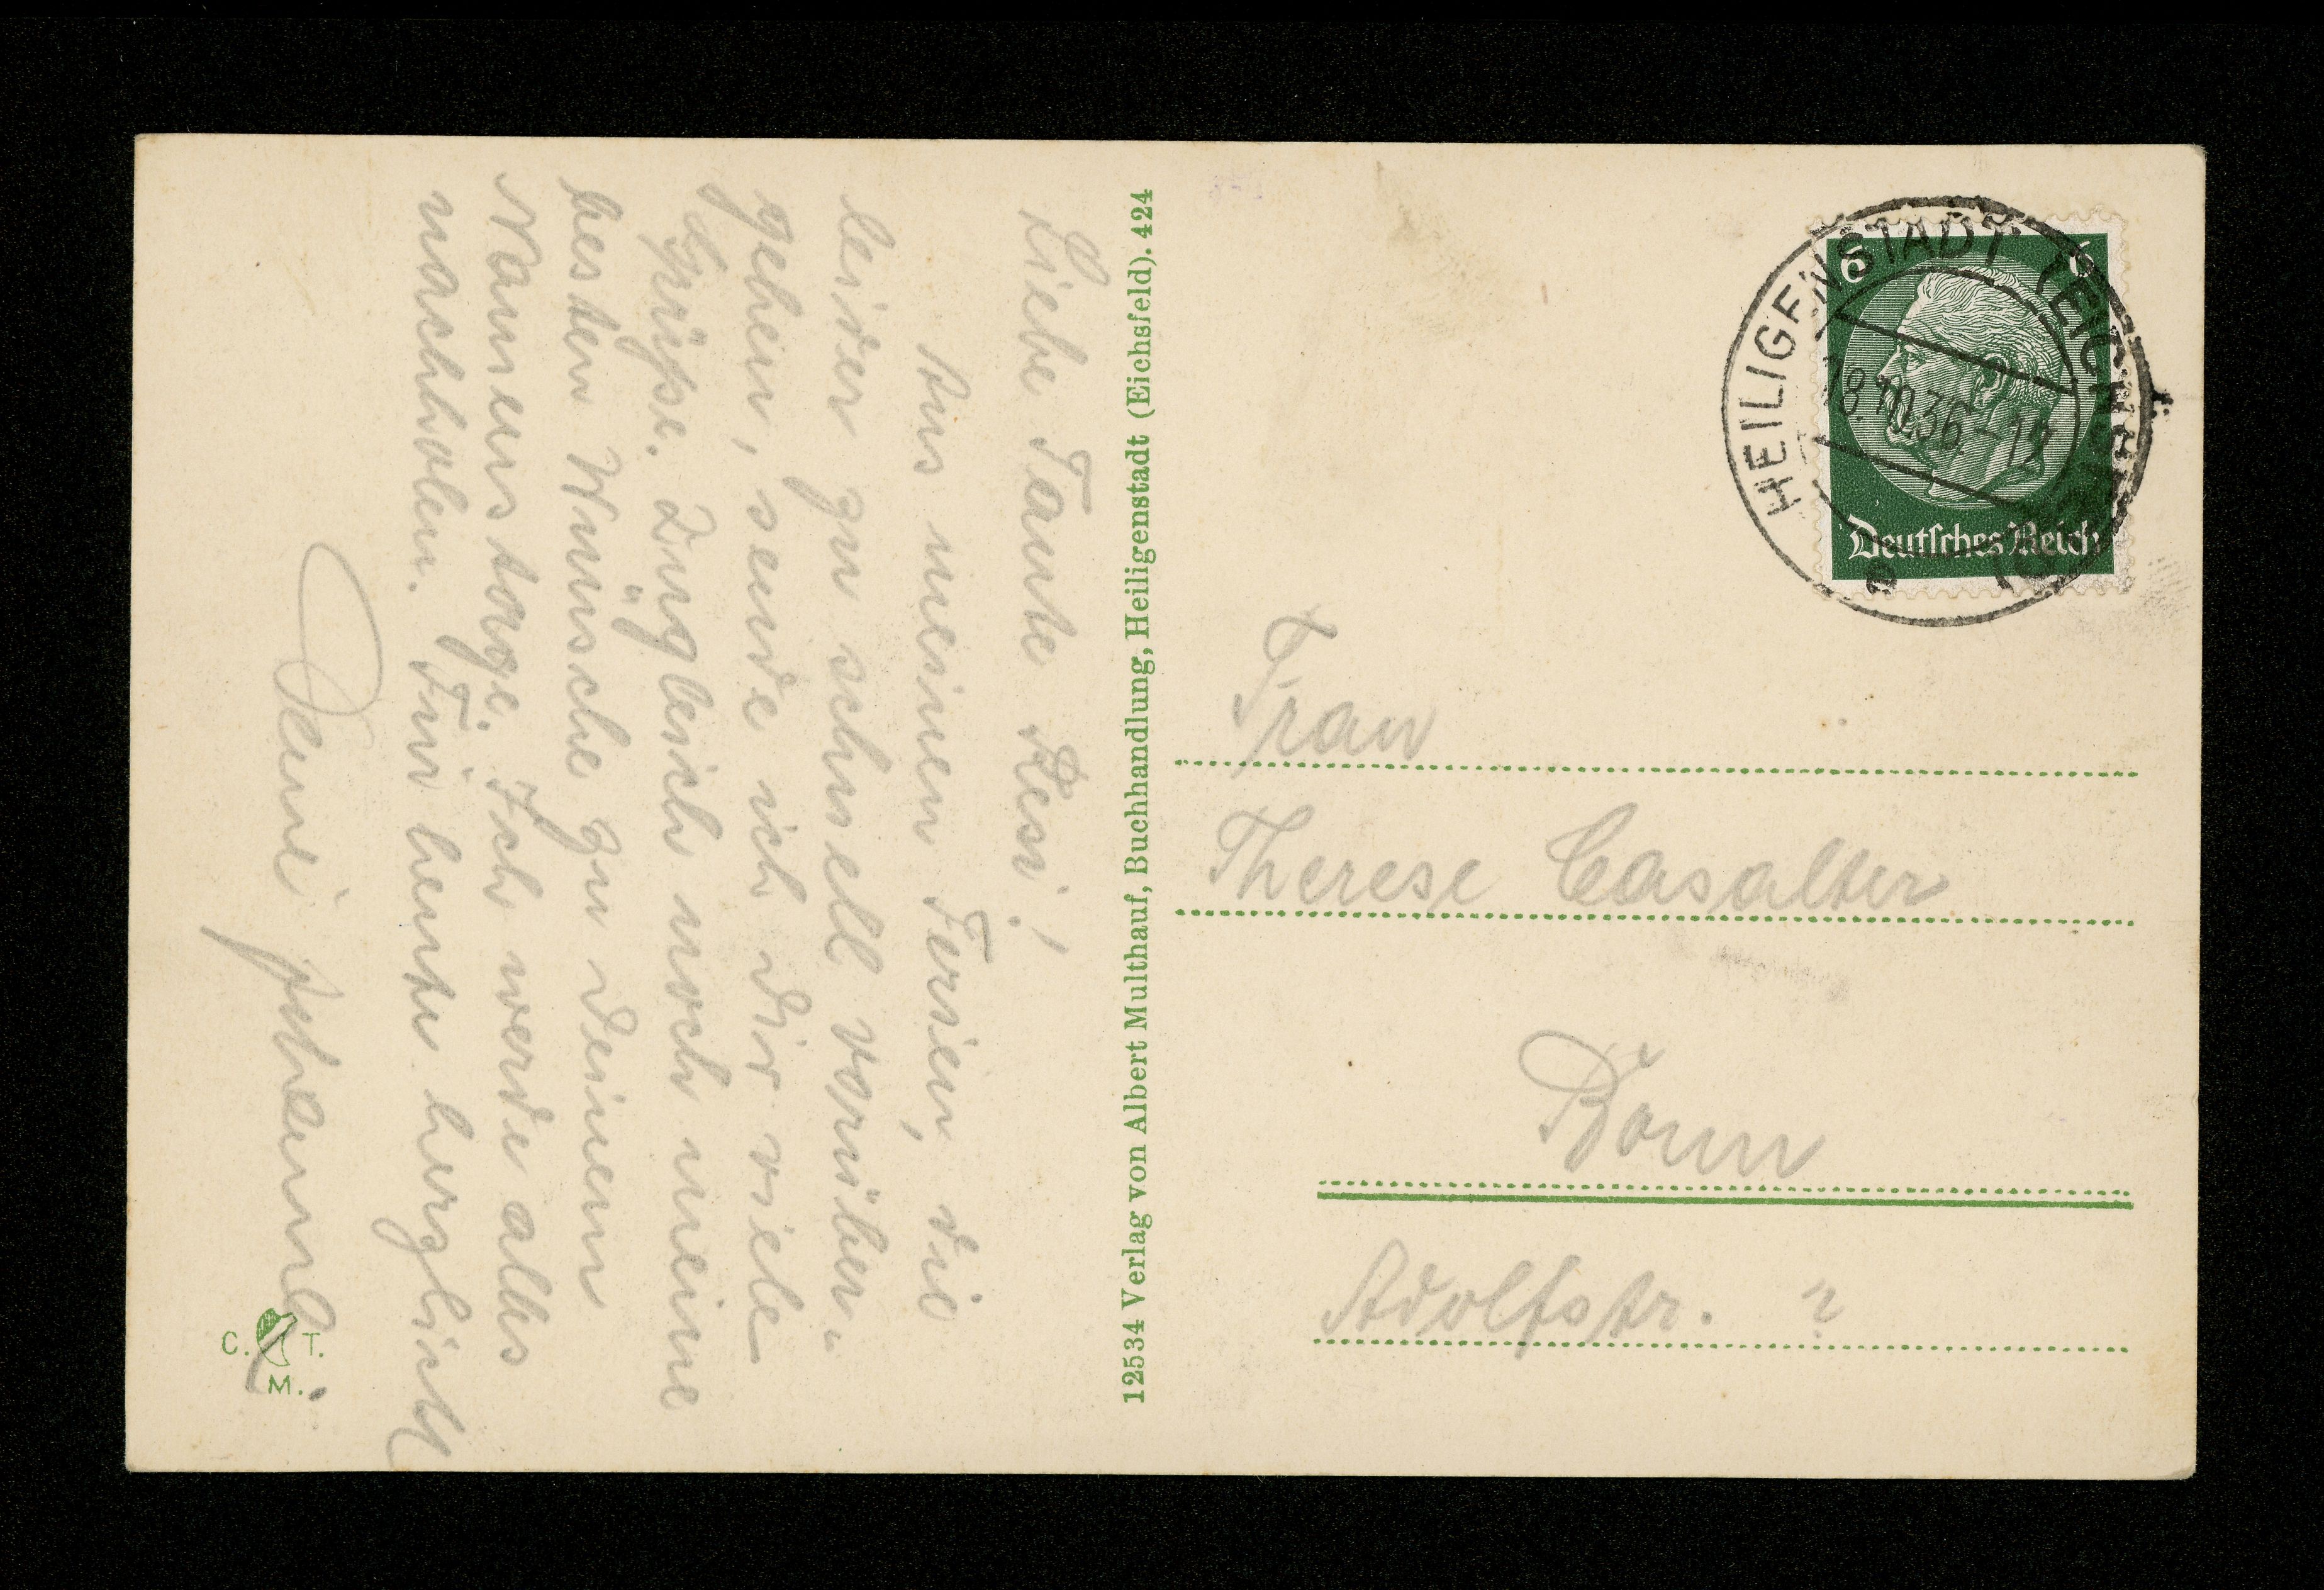 Liebe Tante Resi!
Aus meinen Ferien, die
leider zu schnell vorüber-
gehen, sende ich dir viele
Grüße. Zugleich noch meine
besten Wünsche zu deinem
Namenstage. Ich werde alles
nachholen. Für heute herzlichst
Deine
C. T.
M.
12534 Verlag von Albert Multhauf, Buchhandlung, Heiligenstadt (Eichsfeld). 424
HEILIGENSTADT (EICHSFELD)
18.10.36.-12
6 6
Deutsches Reich
Frau
Therese Casalter
Bonn
Adolfstr.